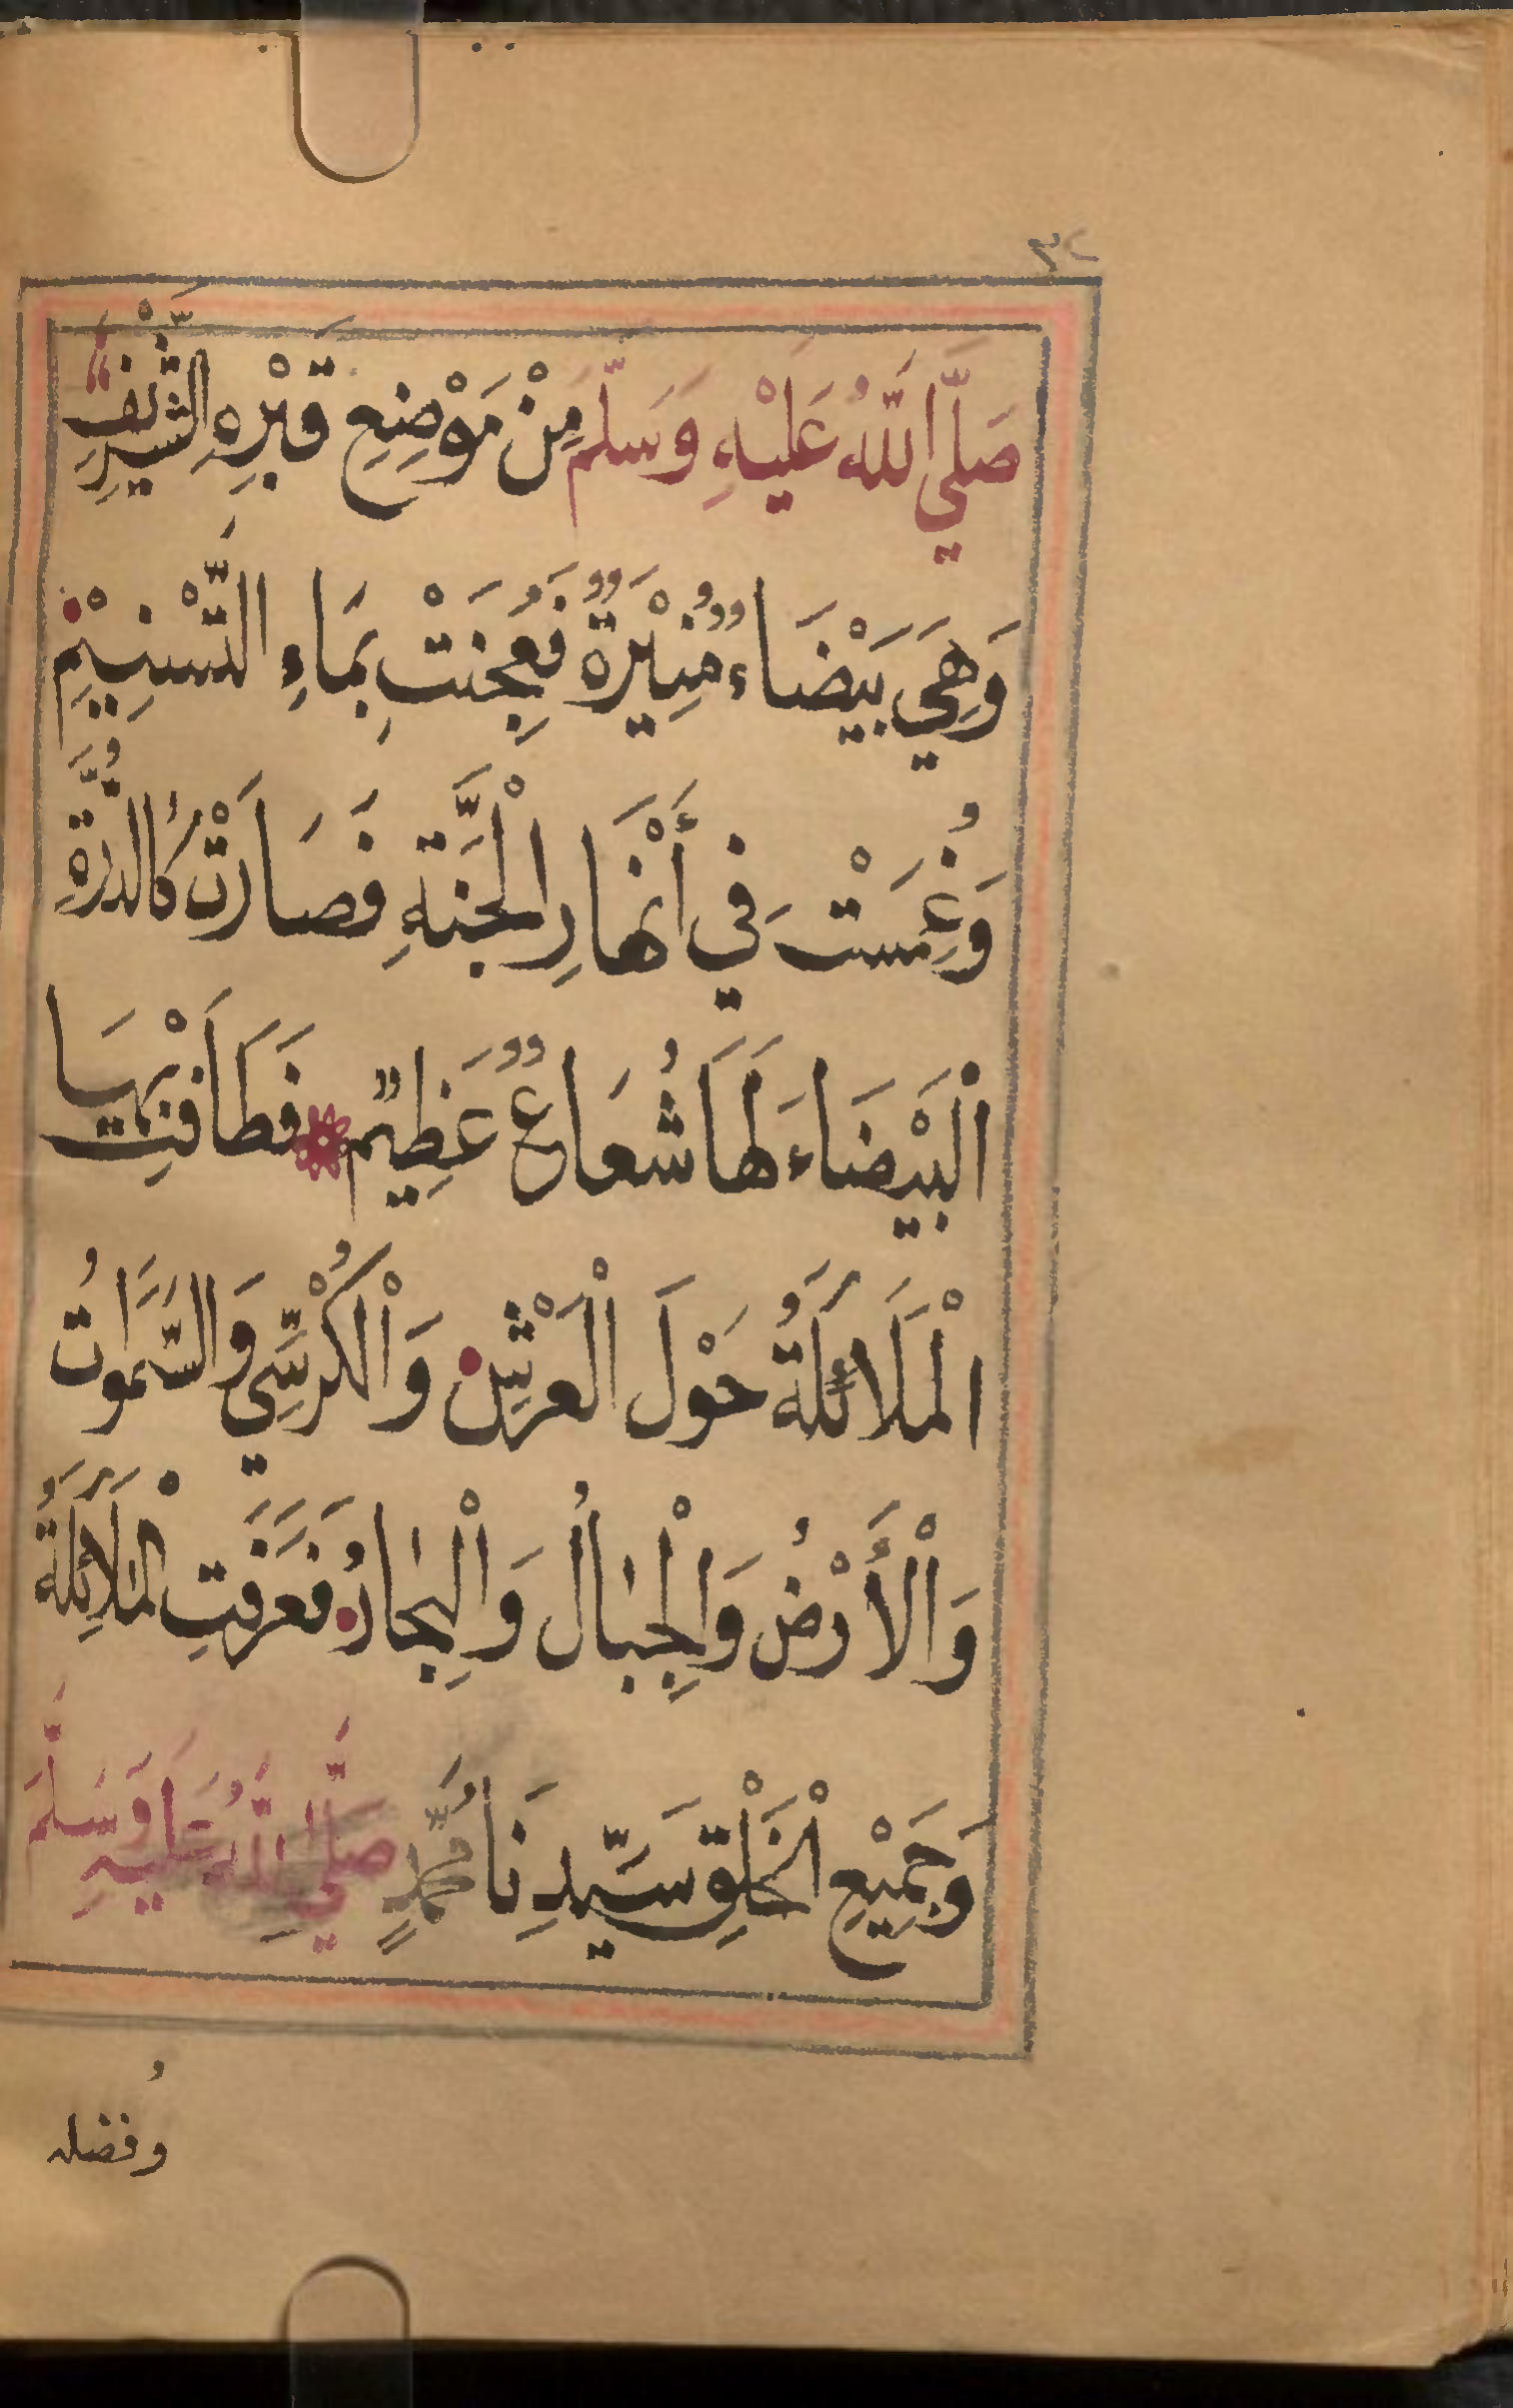 ٣٤
صَلَّي اللَّهُ عَلَيْهِ وَسَلَّمَ مِنْ مَوْضِعِ قَبْرِهِ الشَّرِيْفِ
وَهِيَ بَيْضَاءٌ مُنِيْرَةٌ فَعُجِنَتْ بِمَاءِ التَّسْنِيْمِ
وَغُمِسَتْ فِي أَنْهَارِ الْجَنَّةِ فَصَارَتْ كَالدُّرَّةِ
اَلْبَيْضَاءَ لَهَا شُعَاعٌ عَظِيْمٌ فَطَافَتْ بِهَا
الْمَلَائِكَةُ حَوْلَ الْعَرْشِ وَالْكُرْسِّي وَالسَّمَوَاتُ
وَالْأَرْضُ وَالْجِبَالُ وَالْبِحَارُ فَعَرَفَتِ الْمَلَائِكَةُ
وَجَمِيْعِ الْخَلْقِ سَيِّدِنَا مُحَمَّدٍ صَلَّي اللَّهُ عَلَيْهِ وَسَلَّمَ
وفضله